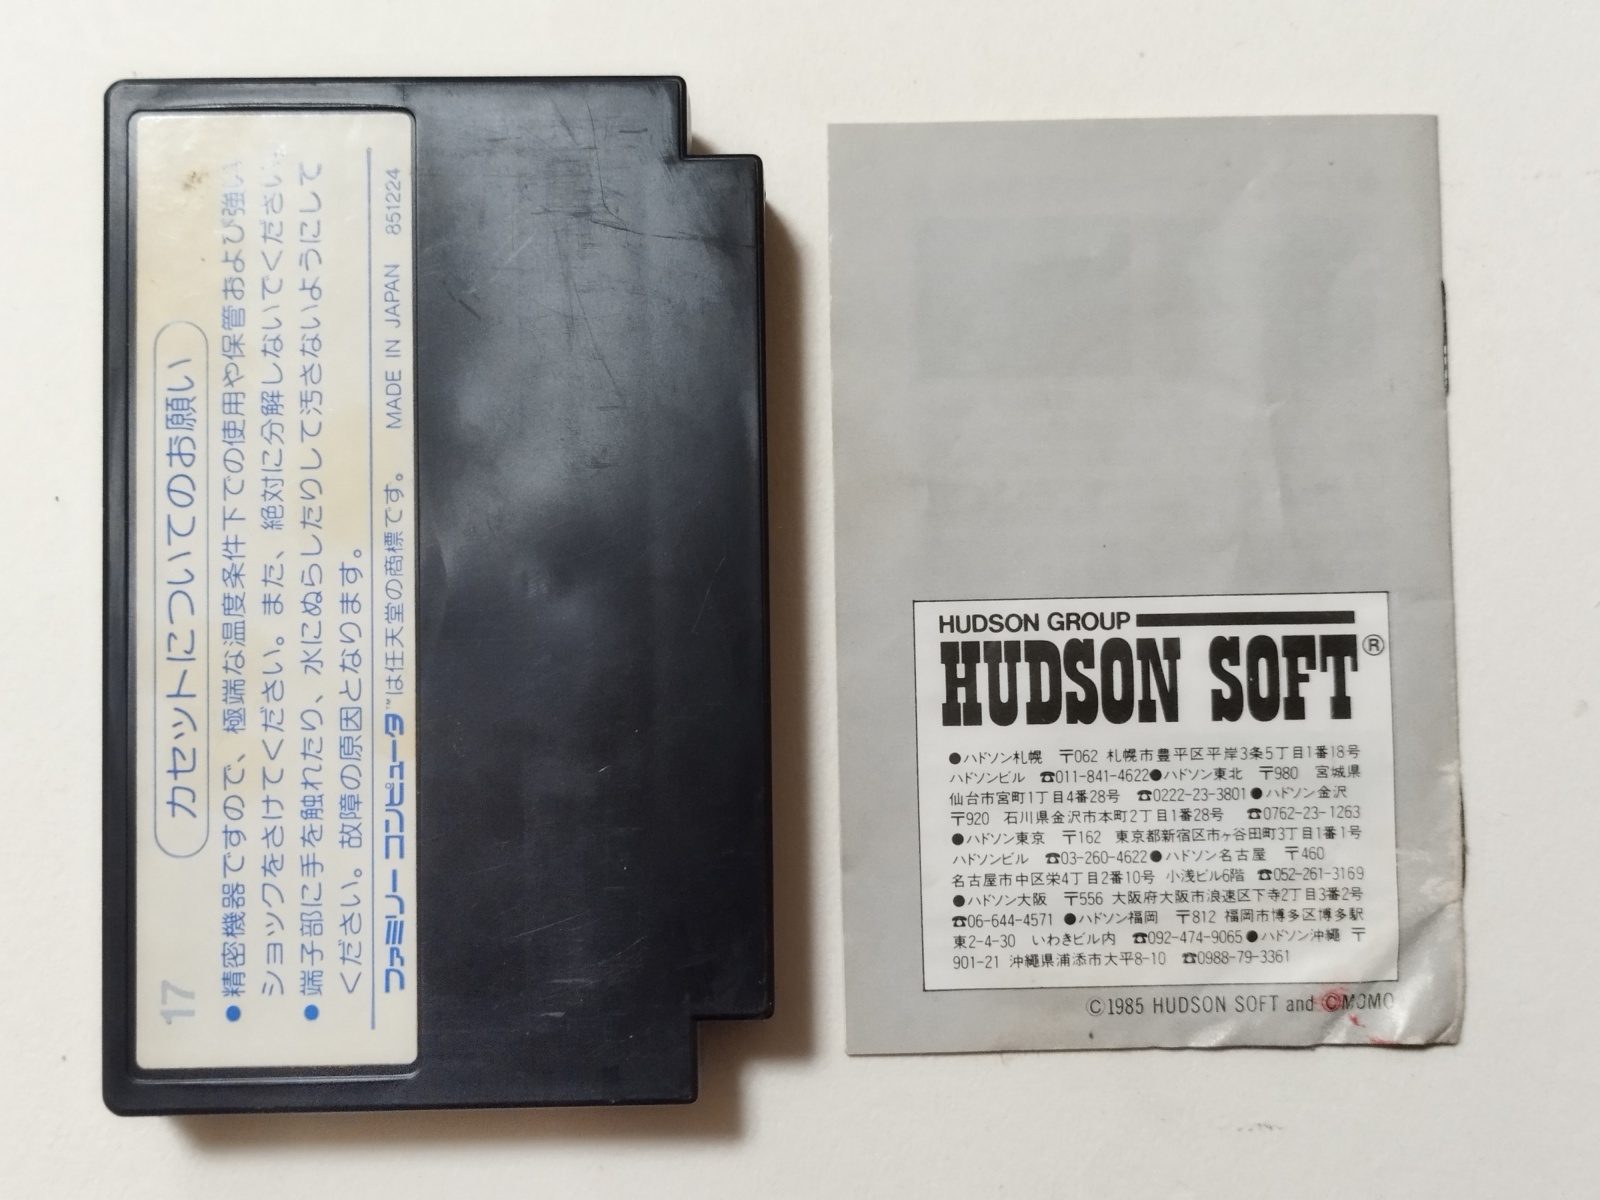 カセットについてのお願い
●精密機器ですので、極端な温度条件下での使用や保管および強い
ショックをさけてください。また、絶対に分解しないでください。
●端子部に手を触れたり、水にぬらしたりして汚さないようにして
ください。故障の原因となります。
ファミリーコンピュータ™は任天堂の商標です。 MADE IN JAPAN 851224
17
HUDSON GROUP
HUDSON SOFT®
●ハドソン札幌 〒062 札幌市豊平区平岸3条5丁目1番18号
ハドソンビル ☎011-841-4622●ハドソン東北 〒980 宮城県
仙台市宮町1丁目4番28号 ☎0222-23-3801●ハドソン金沢
〒920 石川県金沢市本町2丁目1番28号 ☎0762-23-1263
●ハドソン東京 〒162 東京都新宿区市ヶ谷田町3丁目1番1号
ハドソンビル ☎03-260-4622●ハドソン名古屋 〒460
名古屋市中区栄4丁目2番10号 小浅ビル6階 ☎052-261-3169
●ハドソン大阪 〒556 大阪府大阪市浪速区下寺2丁目3番2号
☎06-644-4571 ●ハドソン福岡 〒812 福岡市博多区博多駅
東2-4-30 いわきビル内 ☎092-474-9065●ハドソン沖縄 〒
901-21 沖縄県浦添市大平8-10 ☎0988-79-3361
©1985 HUDSON SOFT and ©MOMO